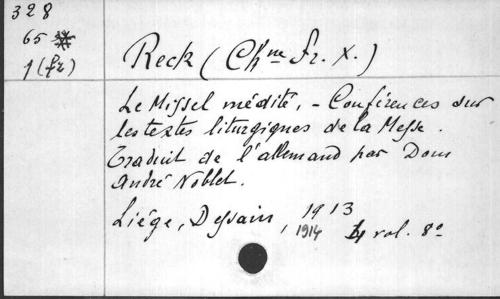 328
65 *
1 (fr)
Reck (Chne Fr. X.)
Le Missel médité, - Conférences sur
les textes liturgiques de la Messe.
Traduit de l'allemand par Dom
André Noblet.
Liége, Dessain, 1913
1914 4 vol. 8°